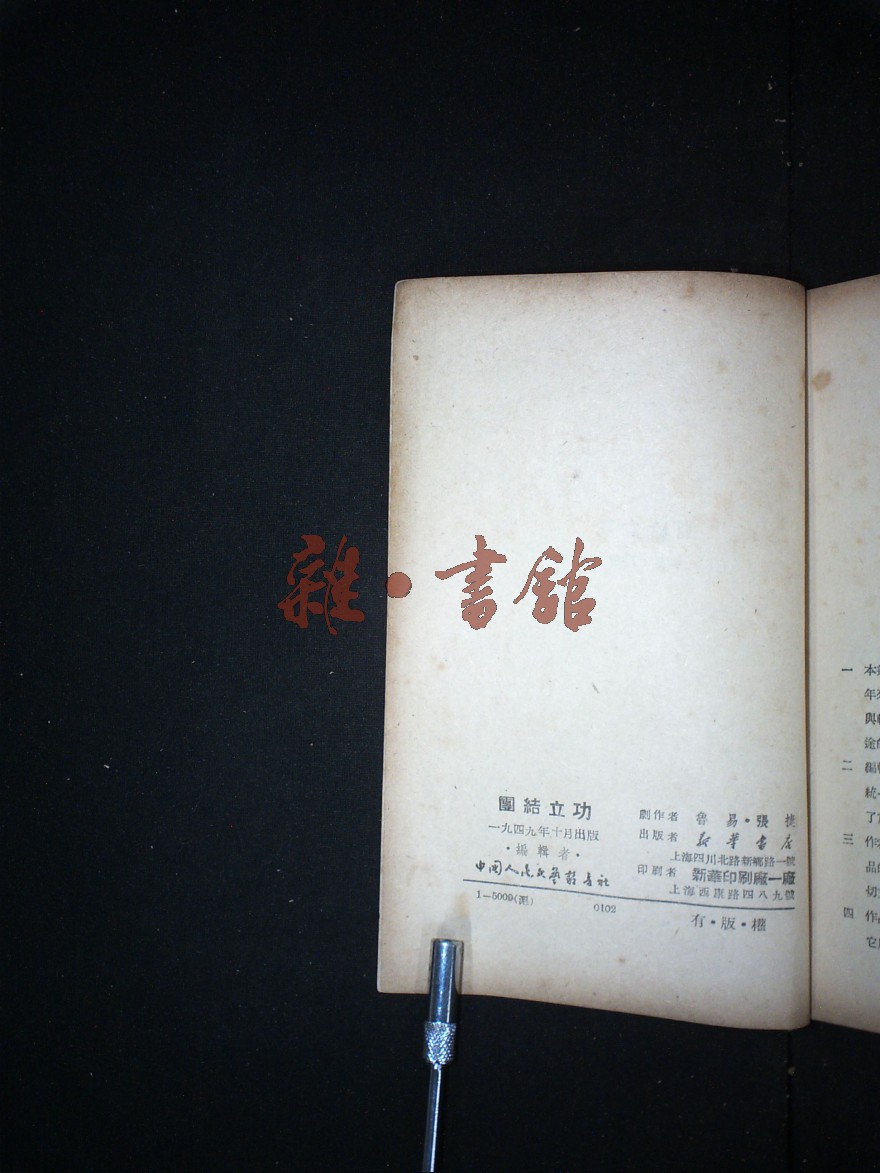 雜·書館
團結立功
一九四九年十月出版
·編輯者·
中國人民文藝叢書社
1—5000(滬) 0102
創作者 魯易·張捷
出版者 新華書店
上海四川北路新鄉路一號
印刷者 新華印刷廠一廠
上海西康路四八九號
有·版·權
一 本
年
與
二 編
統
了
三 作
品
切
四 作
它